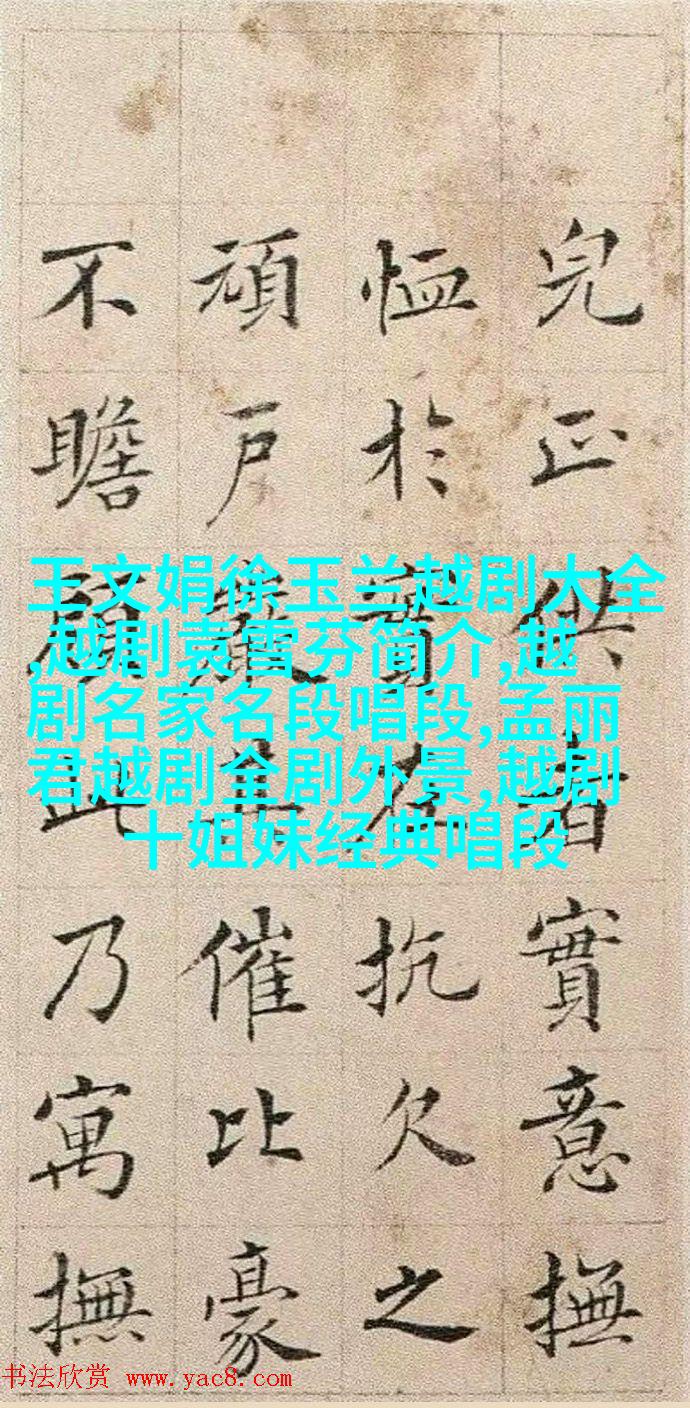 完正供者實意撫
恤於抗欠之
頑戶嚴催比豪
不瞻顧此乃寓撫
王文娟徐玉兰越剧大全
,越剧袁雪芬简介,越
剧名家名段唱段,孟丽
君越剧全剧外景,越剧
十姐妹经典唱段
书法欣赏 www.yac8.com